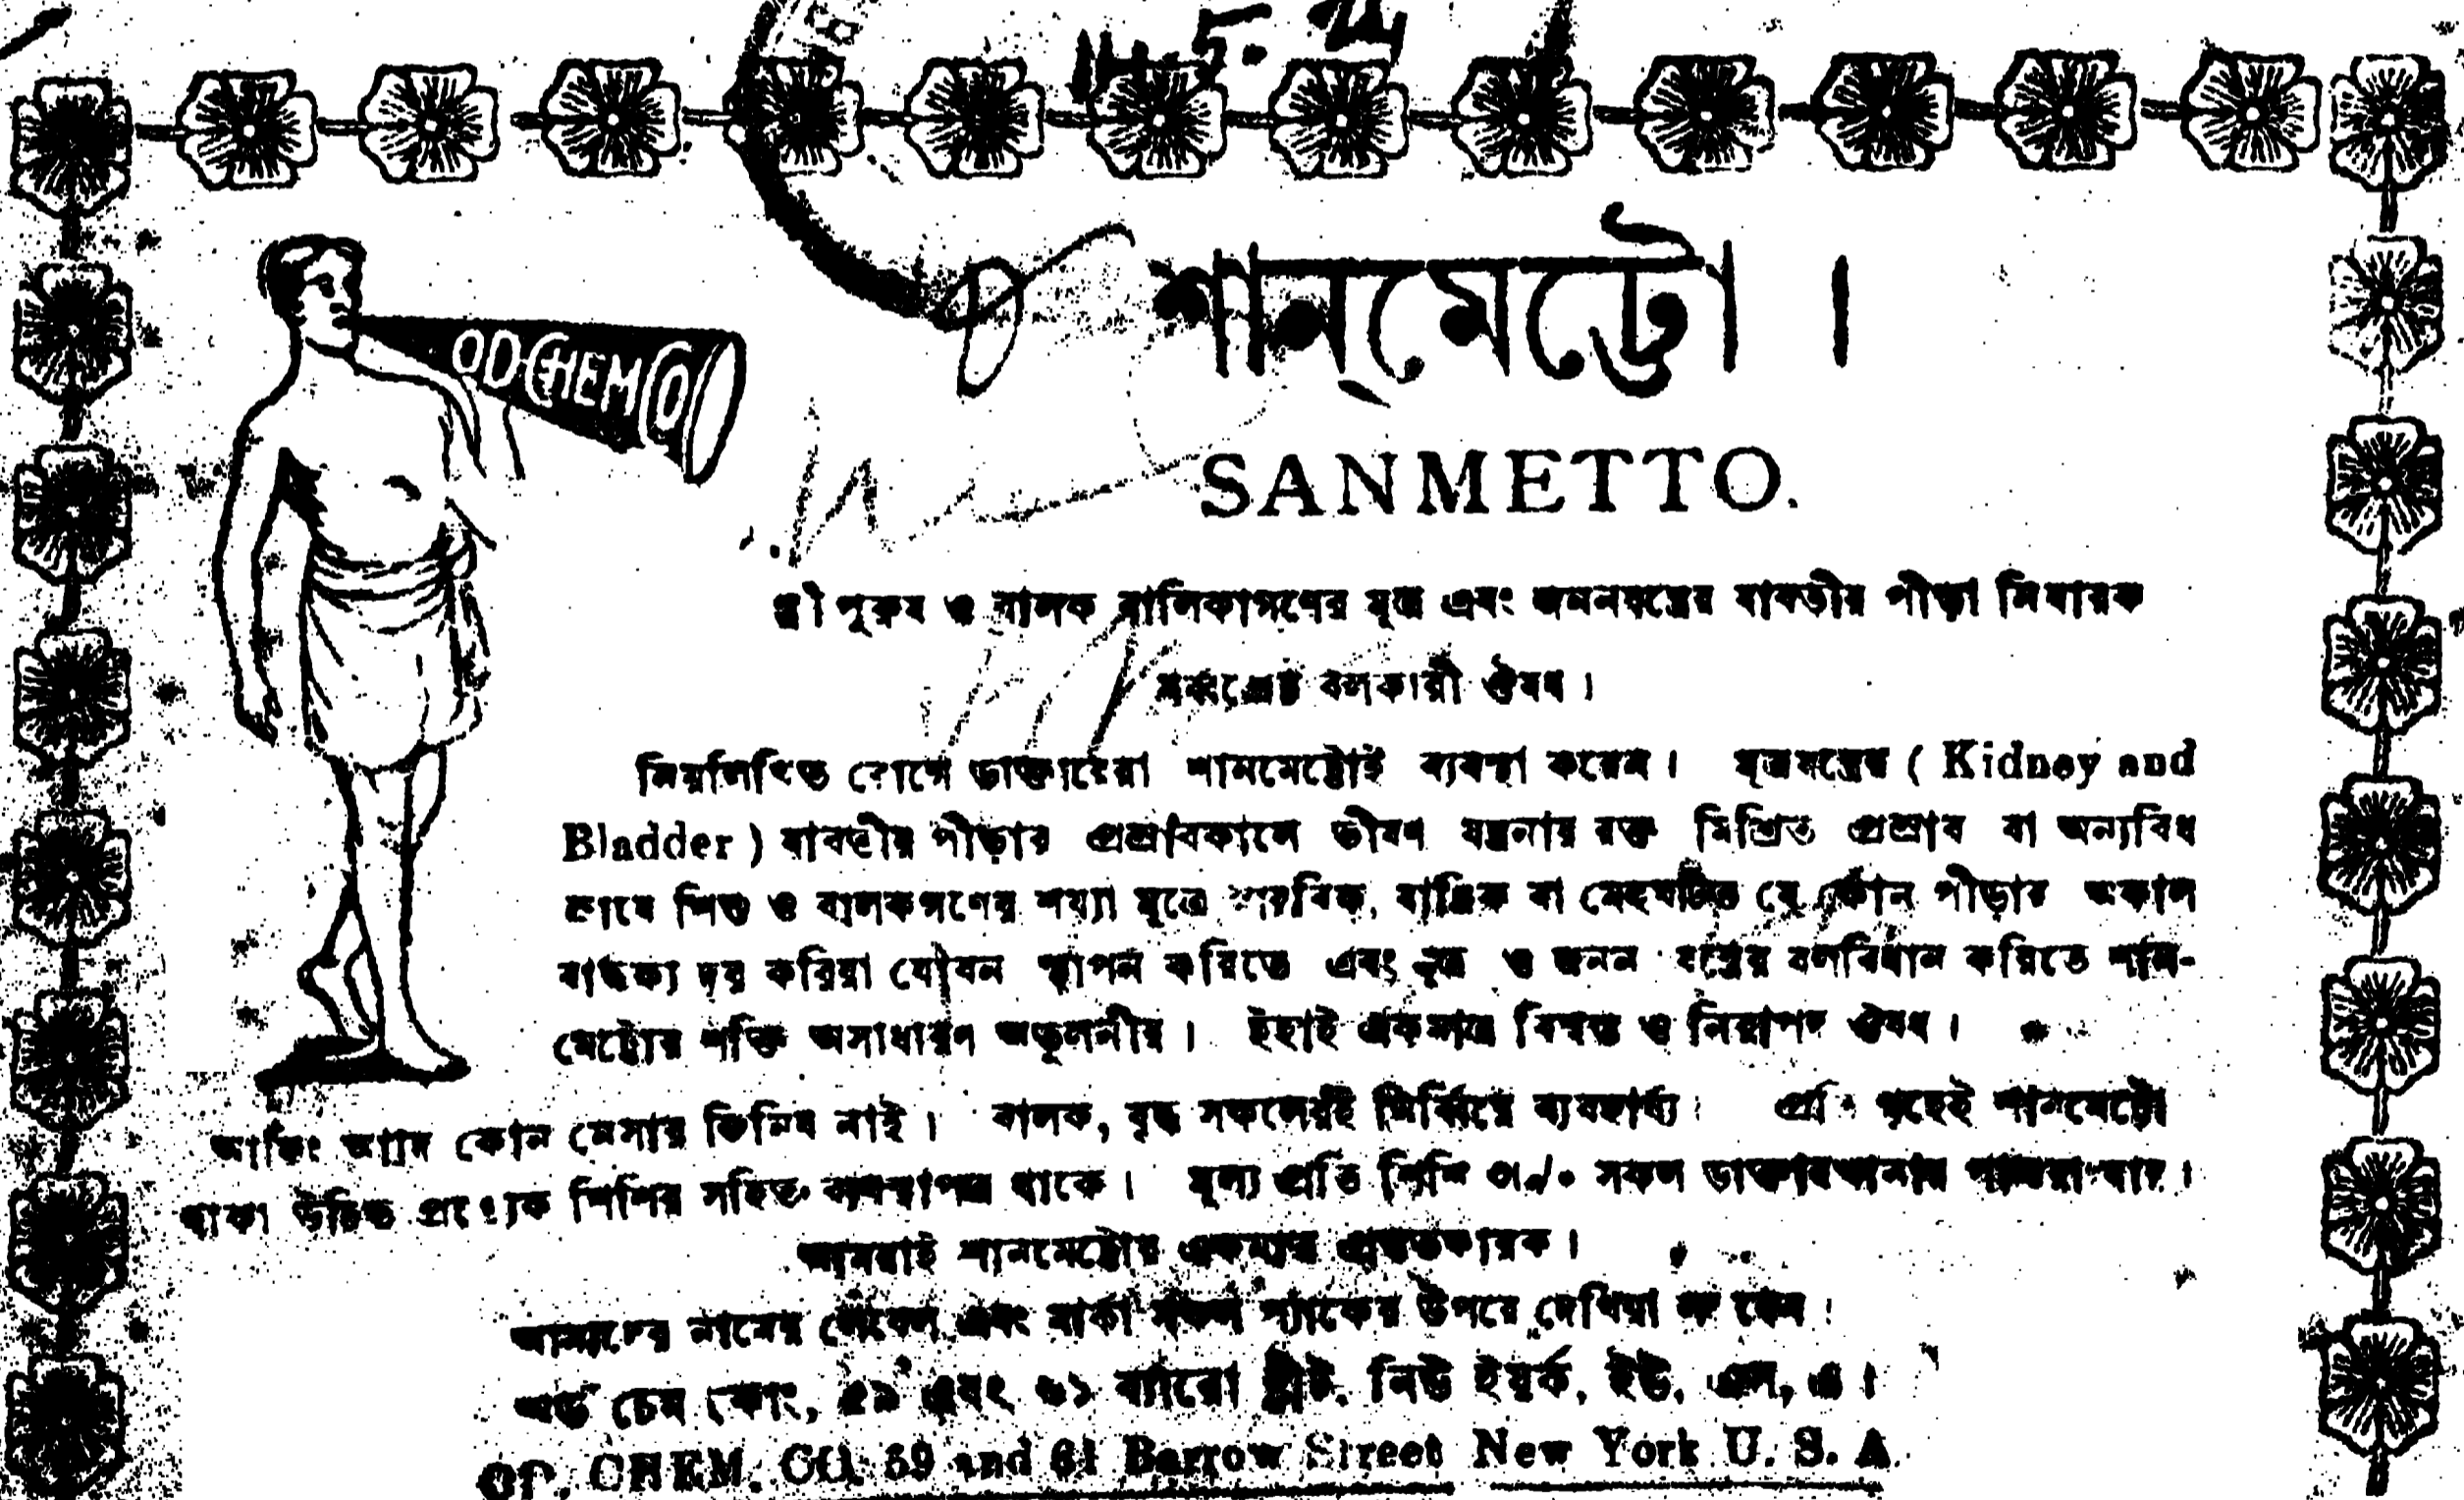 14.5.24
OD CHEM CO
শান্‌মেট্টো ।
SANMETTO.
স্ত্রী পুরুষ ও বালক বালিকাগণের মূত্র এবং জননযন্ত্রের যাবতীয় পীড়া নিবারক
বলকারী ঔষধ ।
নিম্নলিখিত রোগে ডাক্তারেরা শানমেট্টোই ব্যবস্থা করেন । মূত্রযন্ত্রের ( Kidney and
Bladder ) যাবতীয় পীড়ার প্রস্রাবকালে ভীষণ যন্ত্রনার রক্ত মিশ্রিত প্রস্রাব বা অন্যবিধ
শিশু ও বালকগণের শয্যা মূত্রে বা মেহঘটিত যে কোন পীড়ার অকাল
বার্দ্ধক্য দূর করিয়া যৌবন স্থাপন করিতে এবং মূত্র ও জনন যন্ত্রের বলবিধান করিতে শান-
মেট্টোর শক্তি অসাধারণ অতুলনীয় । ইহাই একমাত্র বিশ্বস্ত ও নিরাপদ ঔষধ ।
কোন নেসার জিনিষ নাই । বালক, বৃদ্ধ সকলেরই নির্ব্বিঘ্নে ব্যবহার্য্য । গৃহেই শানমেট্টো
থাকা উচিত প্রত্যেক শিশির সহিত ব্যবস্থাপত্র থাকে । মূল্য প্রতি শিশি ৩৷৵৹ সকল ডাক্তারখানায় পাওয়া যায় ।
আমরাই শানমেট্টোর একমাত্র প্রস্তুতকারক ।
আমাদের নামের লেবেল এবং মার্কা সকল প্যাকের উপরে দেখিয়া
অড চেম কোং, ৫৯ এবং ৬১ ব্যারো ষ্ট্রীট, নিউ ইয়র্ক, ইউ, এস, এ ।
OD. CHEM. CO. 59 and 61 Barrow Street New York U. S. A.